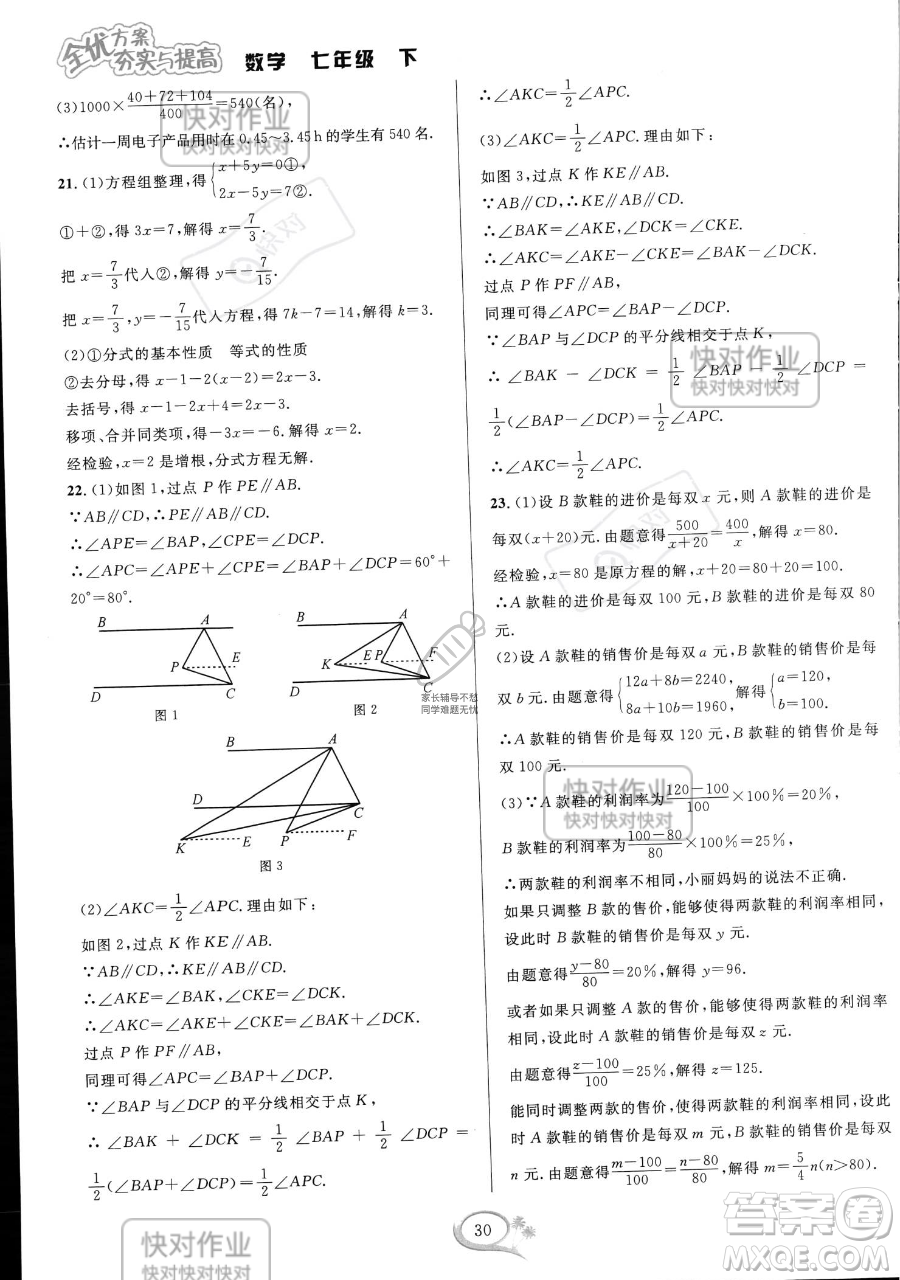 全优方案
夯实与提高 数学 七年级 下
(3)1000×(40+72+104)/400=540(名),
∴估计一周电子产品用时在 0.45~3.45 h 的学生有 540 名.
21. (1)方程组整理,得{x+5y=0①,
2x-5y=7②.
①+②,得 3x=7,解得 x=7/3.
把 x=7/3代人②,解得 y=-7/15.
把 x=7/3,y=-7/15代人方程,得 7k-7=14,解得 k=3.
(2)①分式的基本性质 等式的性质
②去分母,得 x-1-2(x-2)=2,
去括号,得 x-1-2x+4=2,
移项、合并同类项,得-3x=-6.解得 x=2.
经检验,x=2 是增根,分式方程无解.
22. (1)如图 1,过点 P 作 PE∥AB.
∵AB∥CD,∴PE∥AB∥CD.
∴∠APE=∠BAP,∠CPE=∠DCP.
∴∠APC=∠APE+∠CPE=∠BAP+∠DCP=60°+
20°=80°.
B A P E D C
图 1
B A K E P F D C
图 2
B A D C K E P F
图 3
(2)∠AKC=1/2∠APC.理由如下:
如图 2,过点 K 作 KE∥AB.
∵AB∥CD,∴KE∥AB∥CD.
∴∠AKE=∠BAK,∠CKE=∠DCK.
∴∠AKC=∠AKE+∠CKE=∠BAK+∠DCK.
过点 P 作 PF∥AB,
同理可得∠APC=∠BAP+∠DCP.
∵∠BAP 与∠DCP 的平分线相交于点 K,
∴ ∠BAK + ∠DCK = 1/2 ∠BAP + 1/2 ∠DCP =
1/2(∠BAP+∠DCP)=1/2∠APC.
∴∠AKC=1/2∠APC.
(3)∠AKC=1/2∠APC.理由如下:
如图 3,过点 K 作 KE∥AB.
∵AB∥CD,∴KE∥AB∥CD.
∴∠BAK=∠AKE,∠DCK=∠CKE.
∴∠AKC=∠AKE-∠CKE=∠BAK-∠DCK.
过点 P 作 PF∥AB,
同理可得∠APC=∠BAP-∠DCP.
∵∠BAP 与∠DCP 的平分线相交于点 K,
∴ ∠BAK - ∠DCK = 1/2 ∠BAP - 1/2 ∠DCP =
1/2(∠BAP-∠DCP)=1/2∠APC.
∴∠AKC=1/2∠APC.
23. (1)设 B 款鞋的进价是每双 x 元,则 A 款鞋的进价是
每双(x+20)元.由题意得500/(x+20)=400/x,解得 x=80.
经检验,x=80 是原方程的解,x+20=80+20=100.
∴A 款鞋的进价是每双 100 元,B 款鞋的进价是每双 80
元.
(2)设 A 款鞋的销售价是每双 a 元,B 款鞋的销售价是每
双 b 元.由题意得{12a+8b=2240,
8a+10b=1960,解得{a=120,
b=100.
∴A 款鞋的销售价是每双 120 元,B 款鞋的销售价是每
双 100 元.
(3)∵A 款鞋的利润率为(120-100)/100×100%=20%,
B 款鞋的利润率为(100-80)/80×100%=25%,
∴两款鞋的利润率不相同,小丽妈妈的说法不正确.
如果只调整 B 款的售价,能够使得两款鞋的利润率相同,
设此时 B 款鞋的销售价是每双 y 元.
由题意得(y-80)/80=20%,解得 y=96.
或者如果只调整 A 款的售价,能够使得两款鞋的利润率
相同,设此时 A 款鞋的销售价是每双 z 元.
由题意得(z-100)/100=25%,解得 z=125.
能同时调整两款的售价,使得两款鞋的利润率相同,设此
时 A 款鞋的销售价是每双 m 元,B 款鞋的销售价是每双
n 元.由题意得(m-100)/100=(n-80)/80,解得 m=5/4n(n>80).
30
快对作业
快对快对快对
快对作业
快对快对快对
快对作业
快对快对快对
快对作业
快对快对快对
快对
快对
家长辅导不愁
同学难题无忧
答案卷
MXQE.COM